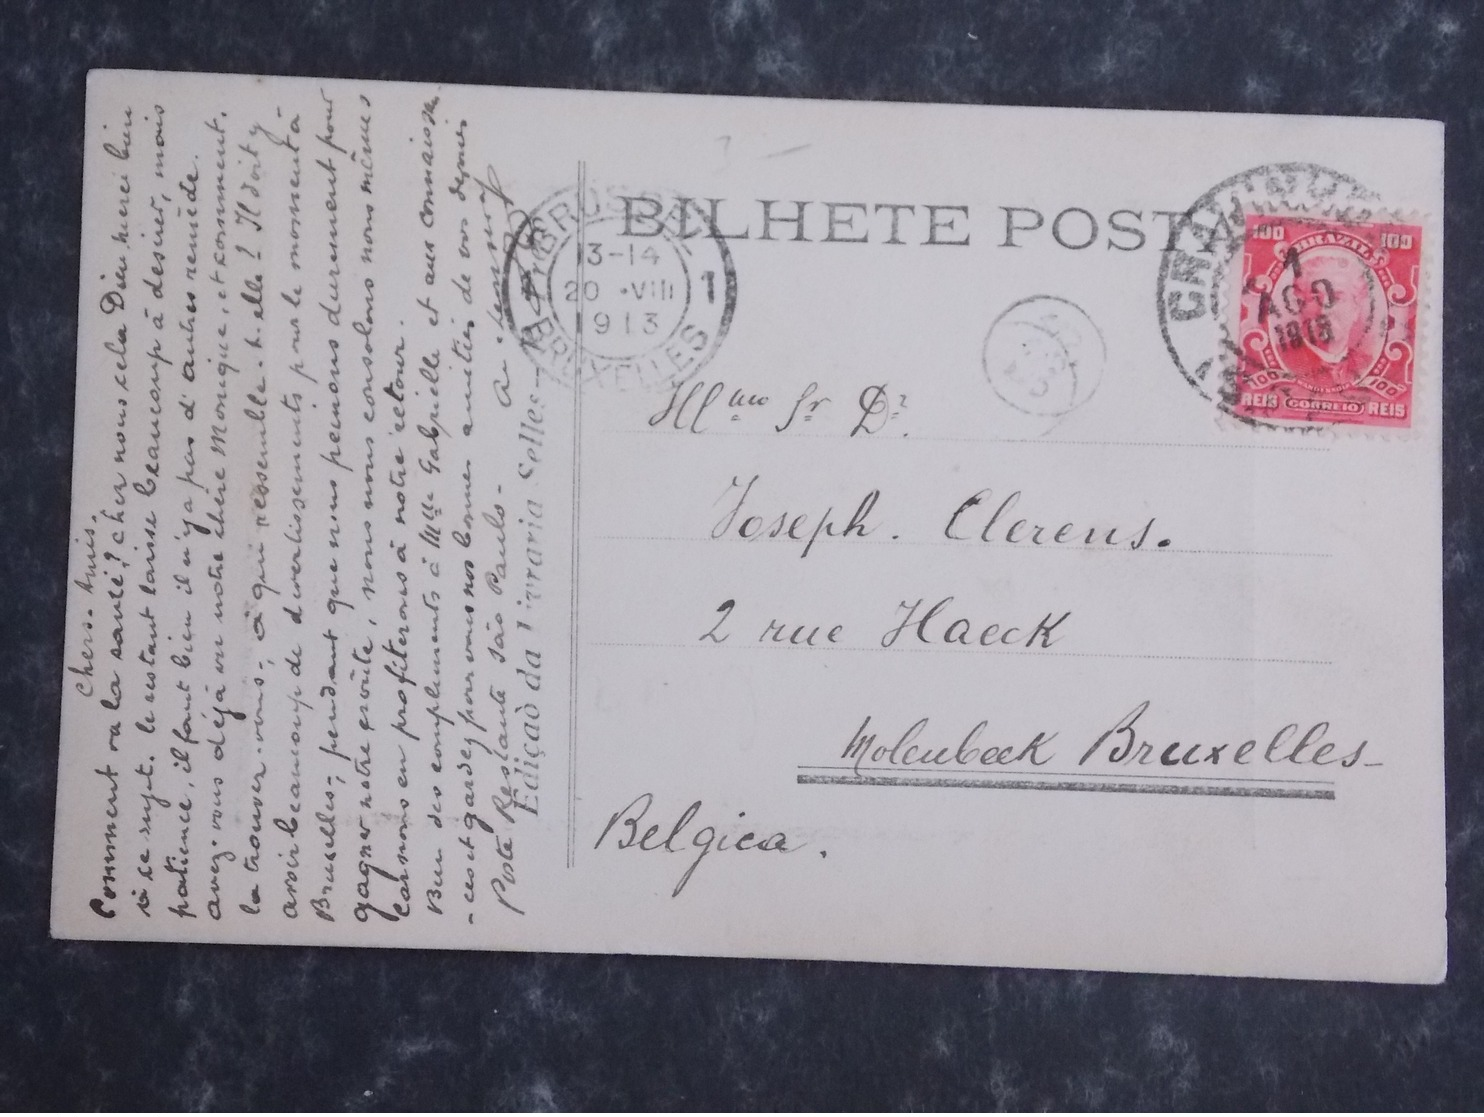 Chers. Amis.
Comment va la santé? chez nous cela Dieu merci bien
à ce sujet. le restant laisse beaucoup à desirer, mais
patience, il faut bien il n'y a pas d'autres remède.
avez-vous déjà vu notre chère Monique, et comment
la trouvez-vous, à qui ressemble-t-elle? Il doit y
avoir beaucoup de divertissements pour le moment à
Bruxelles, pendant que nous peinons durement pour
gagner notre croûte, nous nous consolons nous mêmes
car nous en profiterons à notre retour.
Bien des compliments à Mlle Gabrielle et aux connaissan
-ces et gardez pour vous nos bonnes amitiés de vos
Poste Restante São Paulo-
Edição da Livraria Selles
BILHETE POSTA
BRUXELLES
13-14
20 ·VIII
1913
1
BRUXELLES
100
BRAZIL
100
1
AGO
1913
WANDENKOLK
100
100
REIS
CORREIO
REIS
Illmo Sr Dr.
Joseph. Clerens.
2 rue Haeck
Molenbeek Bruxelles-
Belgica.